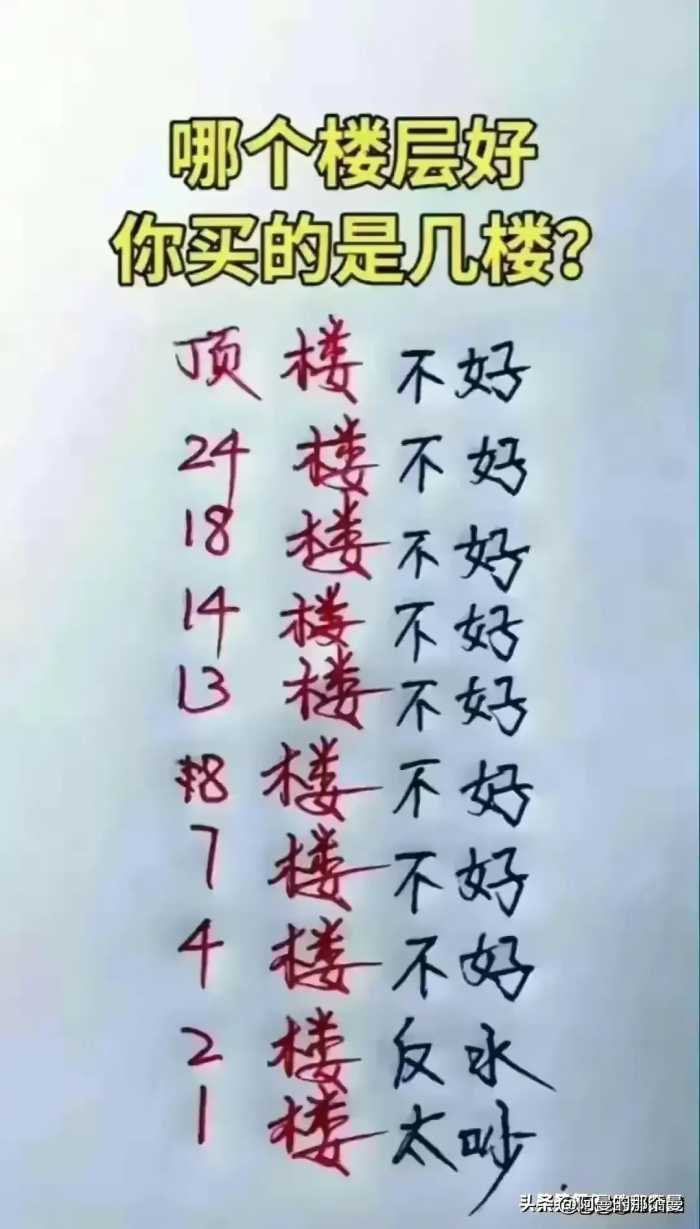 哪个楼层好
你买的是几楼?
顶楼不好
24楼不好
18楼不好
14楼不好
13楼不好
8楼不好
7楼不好
4楼不好
2楼反水
1楼太吵
头条@阿曼的那些曼